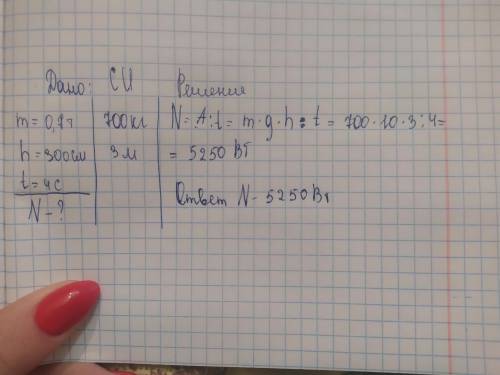 Дано: СИ Решение
m = 0,7т 700кг N = A : t = m · g · h : t = 700 · 10 · 3 : 4 =
h = 300см 3м = 5250 Вт
t = 4с
N - ? Ответ N - 5250 Вт